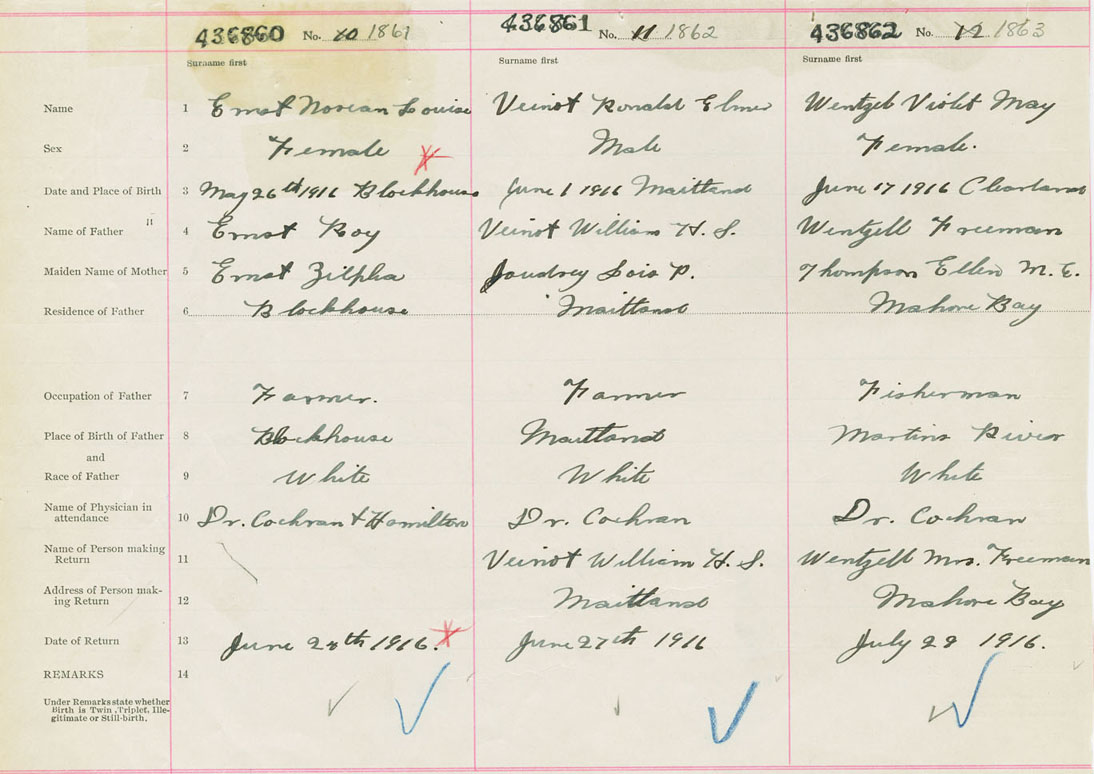 436860 No. 10 1861 436861 No. 11 1862 436862 No. 12 1863
Surname first Surname first Surname first
Name 1 Ernst Norean Louise Veinot Ronald Elmer Wentzell Violet May
Sex 2 Female Male Female.
Date and Place of Birth 3 May 26th 1916 Blockhouse June 1 1916 Maitland June 17 1916 Clearland
Name of Father 4 Ernst Roy Veinot William H. S. Wentzell Freeman
Maiden Name of Mother 5 Ernst Zilpha Joudrey Lois P. Thompson Ellen M. E.
Residence of Father 6 Blockhouse Maitland Mahone Bay
Occupation of Father 7 Farmer. Farmer Fisherman
Place of Birth of Father 8 Blockhouse Maitland Martins River
and
Race of Father 9 White White White
Name of Physician in
attendance 10 Dr. Cochran & Hamilton Dr. Cochran Dr. Cochran
Name of Person making
Return 11 Veinot William H. S. Wentzell Mrs. Freeman
Address of Person mak-
ing Return 12 Maitland Mahone Bay
Date of Return 13 June 1916. June 27th 1916 July 28 1916.
REMARKS 14
Under Remarks state whether
Birth is Twin, Triplet, Ille-
gitimate or Still-birth.